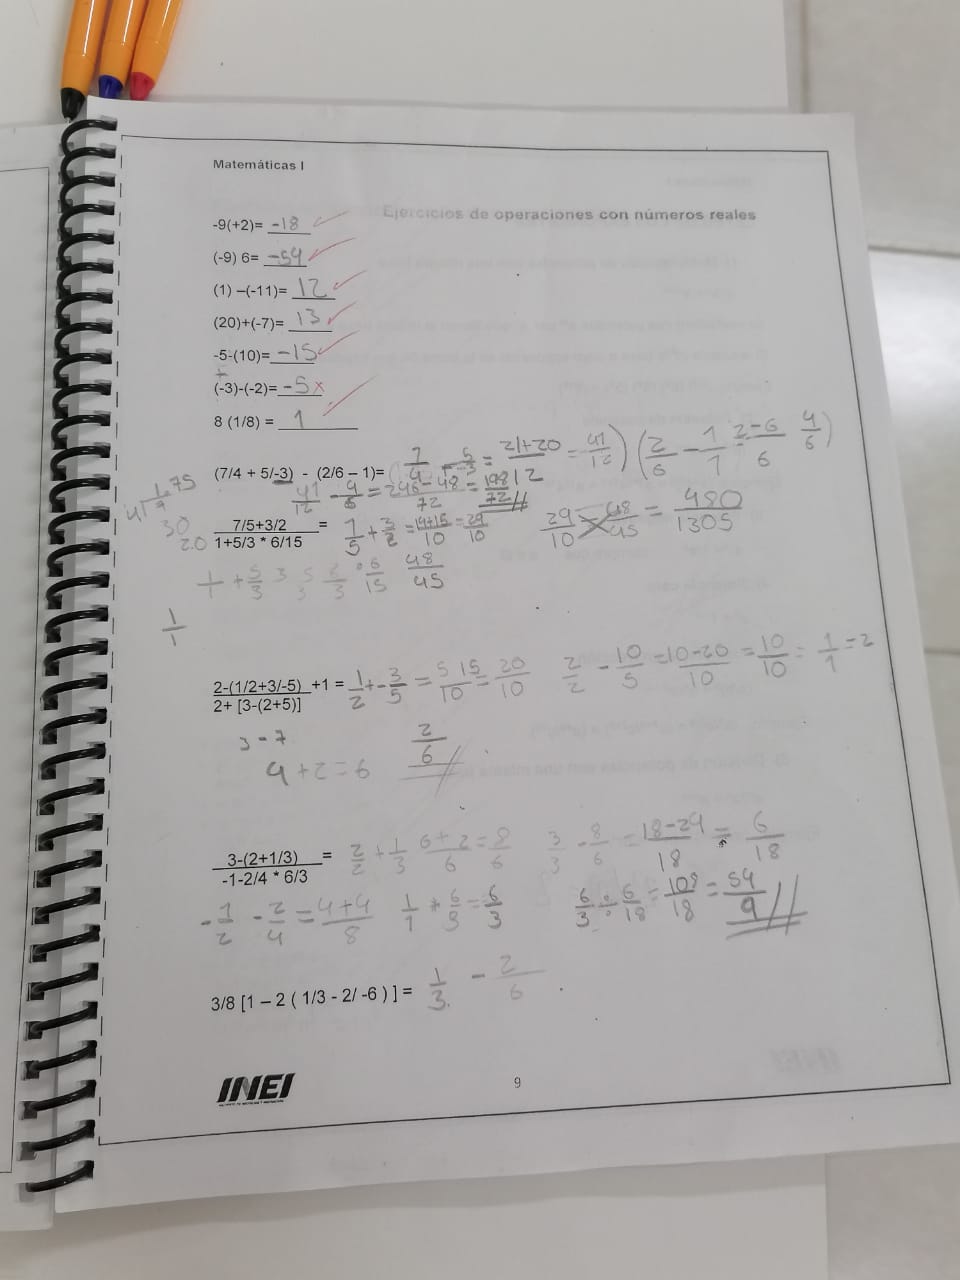 Matemáticas I
Ejercicios de operaciones con números reales
-9(+2)= -18
(-9) 6= -54
(1) –(-11)= 12
(20)+(-7)= 13
-5-(10)= -15
+
(-3)-(-2)= -5 x
8 (1/8) = 1
(7/4 + 5/-3) - (2/6 – 1)= 7/4 - 5/-3 = 21+20/12 = 41/12 ) ( 2/6 - 1/1 = 2-6/6 4/6 )
41/12 - 4/6 = 246-48/72 = 198/72
1.75
30
20
7/5+3/2 = 7/5 + 3/2 = 14+15/10 = 29/10 29/10 48/45 = 480/1305
1+5/3 * 6/15
1 + 5/3 3 5/3 8/3 · 6/15 48/45
1/1
2-(1/2+3/-5) +1 = 1/2 + - 3/5 = 5 15/10 = 20/10 2/2 - 10/5 = 10-20/10 = 10/10 = 1/1 = 2
2+ [3-(2+5)]
3 - 7 2/6
4 + 2 = 6
3-(2+1/3) = 2/2 + 1/3 6+2/6 = 8/6 3/3 - 8/6 = 18-24/18 = 6/18
-1-2/4 * 6/3
- 1/2 - 2/4 = 4+4/8 1/1 * 6/3 = 6/3 6/3 ÷ 6/18 = 108/18 = 54/9
3/8 [1 – 2 ( 1/3 - 2/ -6 ) ] = 1/3 - 2/6
INEI
9